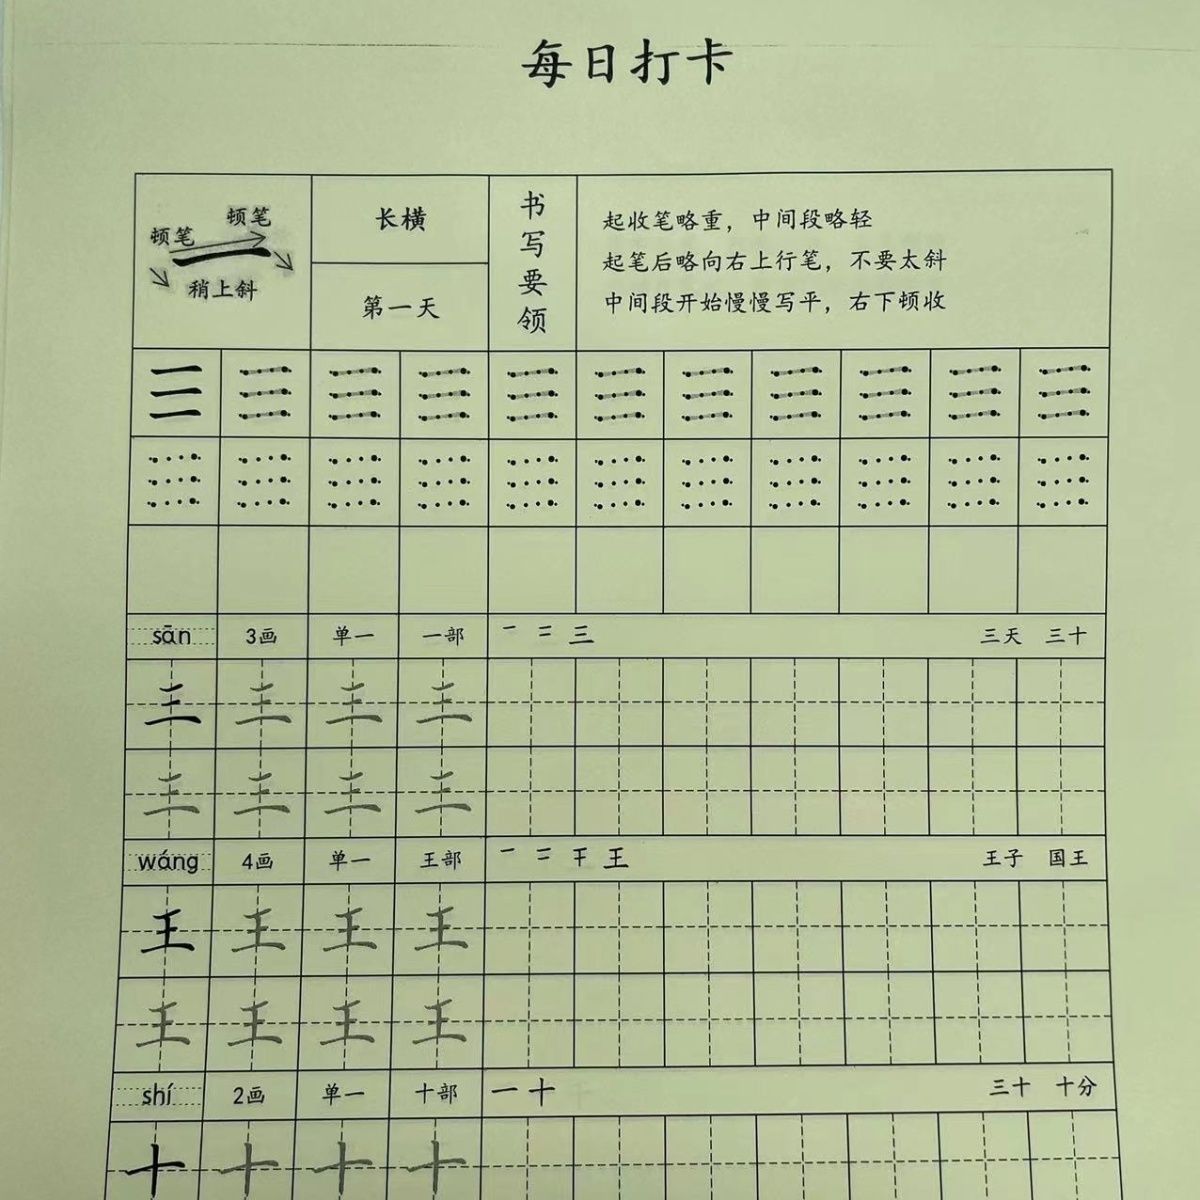 每日打卡
顿笔
顿笔
稍上斜
长横
第一天
书写要领
起收笔略重，中间段略轻
起笔后略向右上行笔，不要太斜
中间段开始慢慢写平，右下顿收
sān 3画 单一 一部 一 二 三 三天 三十
三 三 三 三
三 三 三 三
wáng 4画 单一 王部 一 二 干 王 王子 国王
王 王 王 王
王 王 王 王
shí 2画 单一 十部 一 十 三十 十分
十 十 十 十